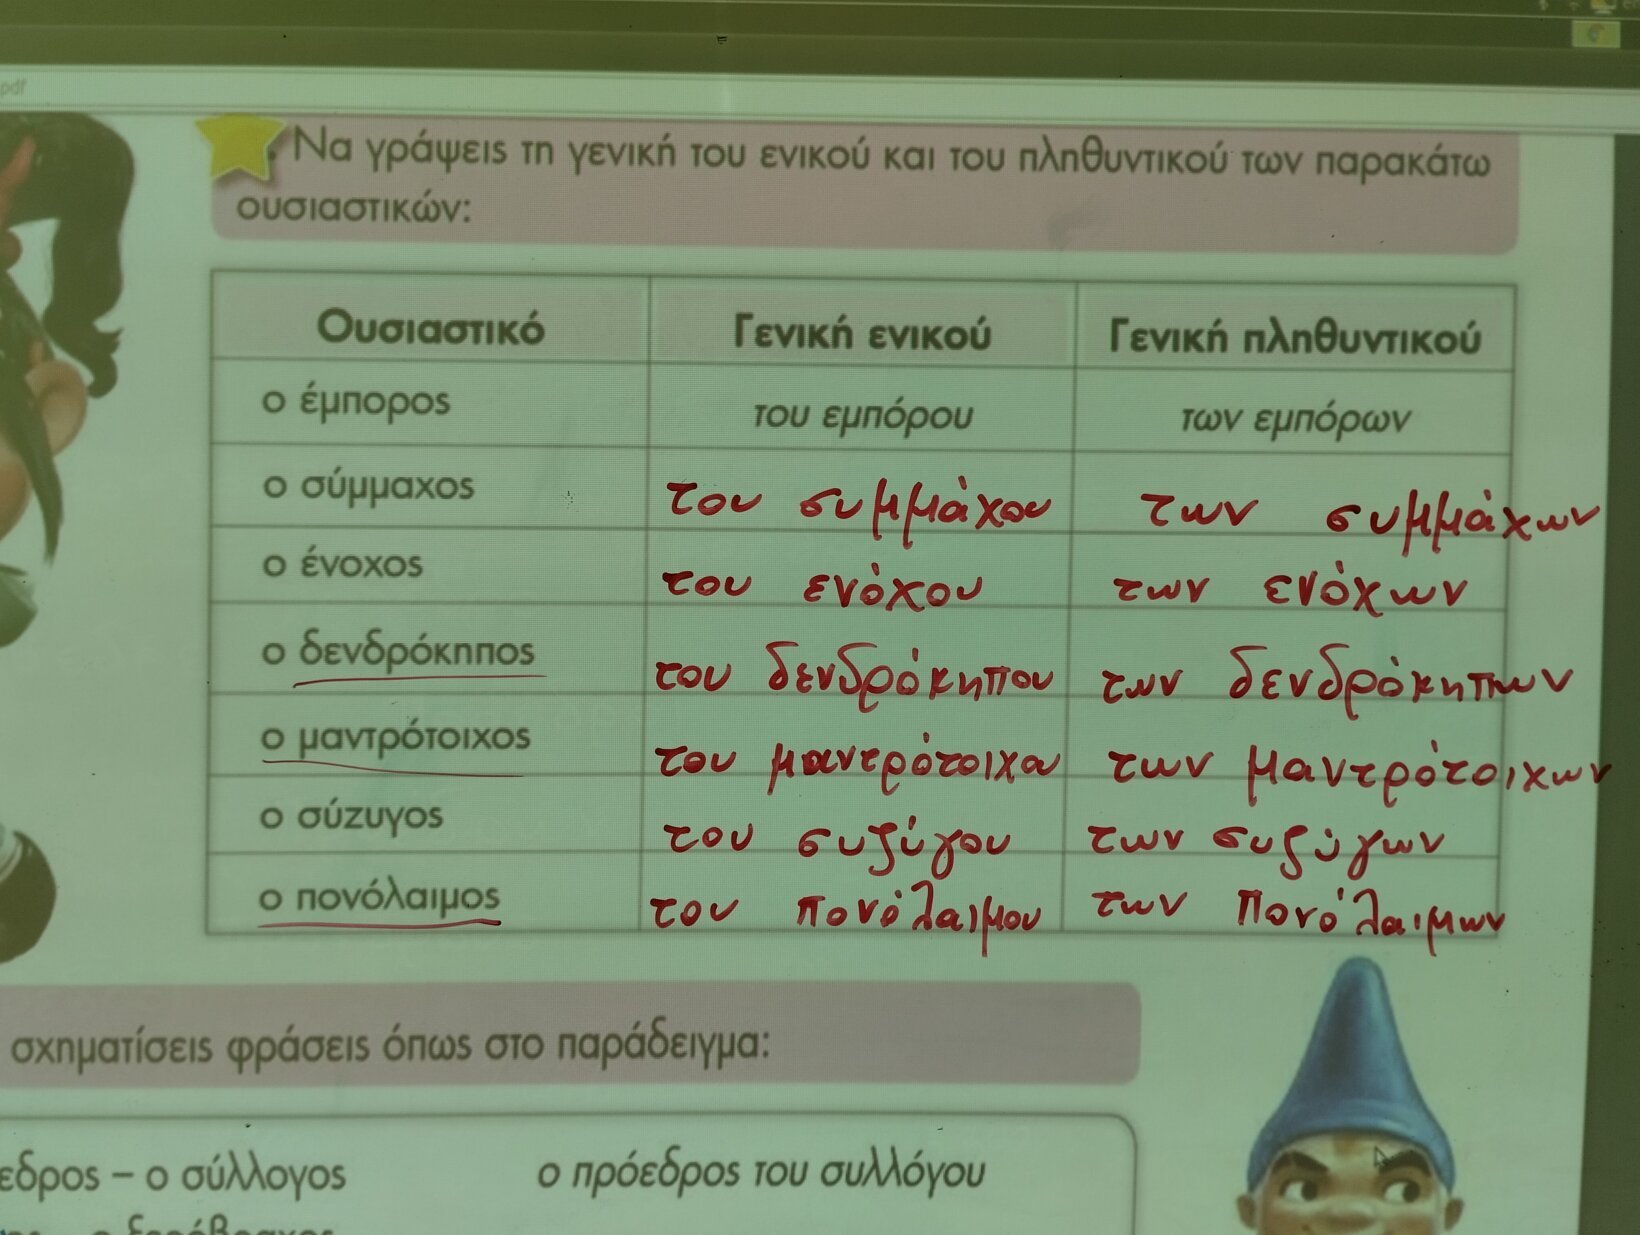 pdf
Να γράψεις τη γενική του ενικού και του πληθυντικού των παρακάτω
ουσιαστικών:
Ουσιαστικό Γενική ενικού Γενική πληθυντικού
ο έμπορος του εμπόρου των εμπόρων
ο σύμμαχος του συμμάχου των συμμάχων
ο ένοχος του ενόχου των ενόχων
ο δενδρόκηπος του δενδρόκηπου των δενδρόκηπων
ο μαντρότοιχος του μαντρότοιχου των μαντρότοιχων
ο σύζυγος του συζύγου των συζύγων
ο πονόλαιμος του πονόλαιμου των πονόλαιμων
σχηματίσεις φράσεις όπως στο παράδειγμα:
εδρος – ο σύλλογος ο πρόεδρος του συλλόγου